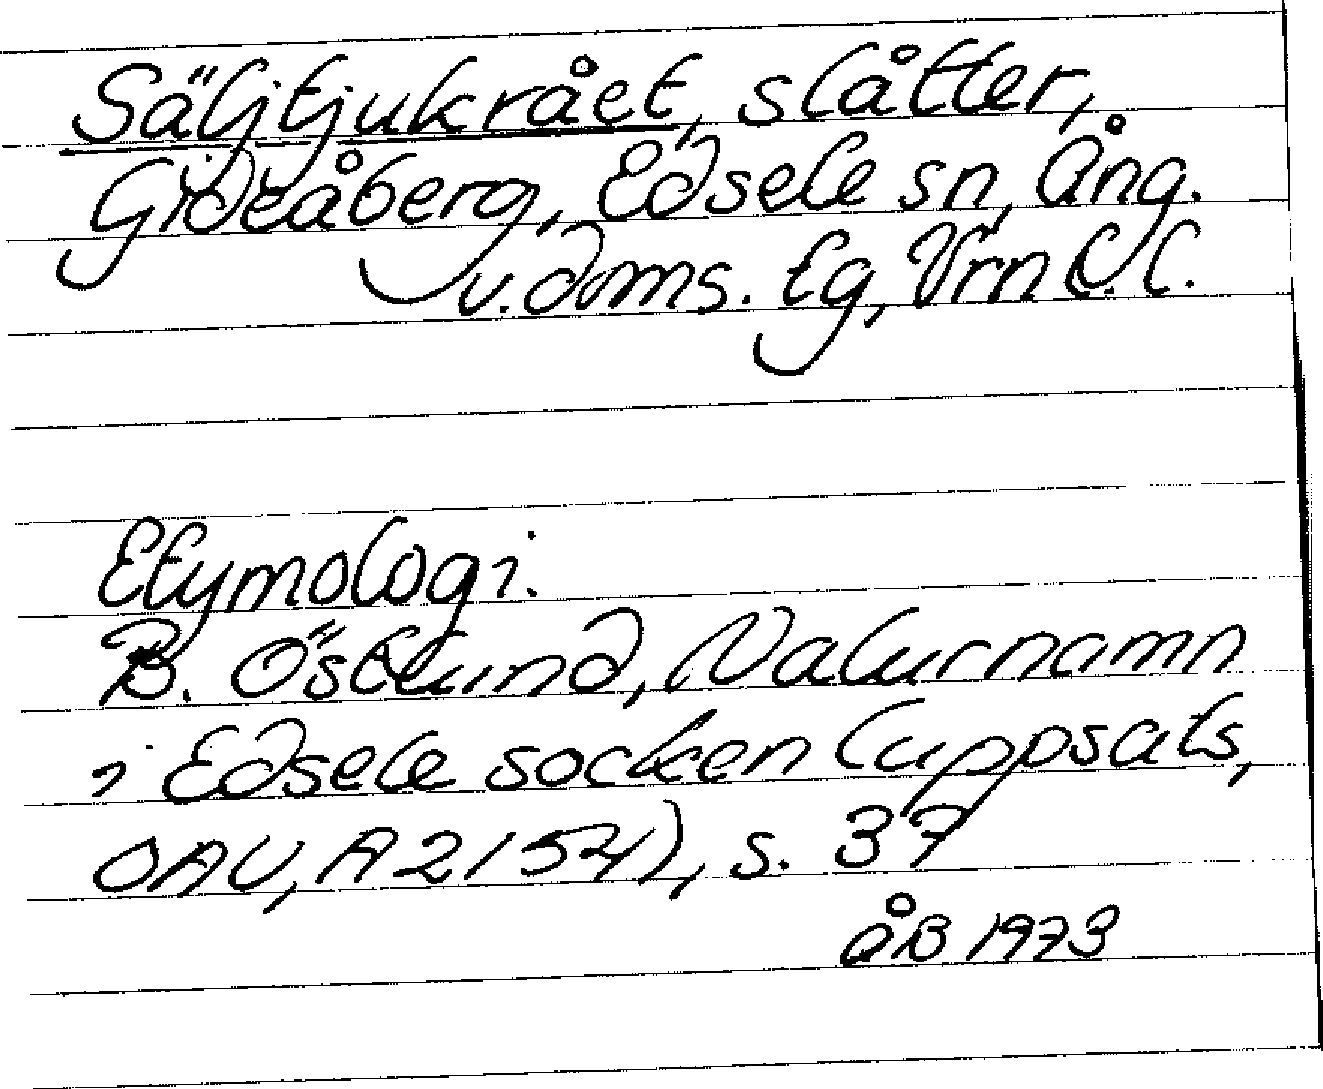 Säljtjukrået, slåtter,
Gideåberg, Edsele sn, Ång.
v. dms. tg, Vrn
Etymologi:
B. Östlund, Naturnamn
i Edsele socken (uppsats,
OAU, A 2154), s. 37
ÅB 1973